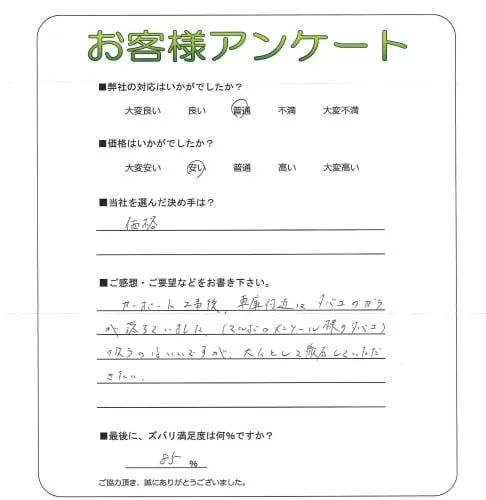 お客様アンケート
■弊社の対応はいかがでしたか？
大変良い 良い 普通 不満 大変不満
■価格はいかがでしたか？
大変安い 安い 普通 高い 大変高い
■当社を選んだ決め手は？
価格
■ご感想・ご要望などをお書き下さい。
カーポート工事後、車庫付近にタバコのガラ
が落ちていました。（マルボロメンソール様のタバコ）
吸うのはいいですが、大人として徹底していただ
きたい。
■最後に、ズバリ満足度は何%ですか？
85 %
ご協力頂き、誠にありがとうございました。